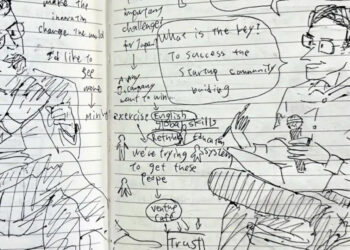 make the
innovation
change the world
I'd like to
see
more
important
challenges
for Japan
A any
company
want to win.
What is the key?
To success the
Startup community
building
exercise English
global skills
Education
System
we're trying
to get these
Peope
venture
cafe
Trust